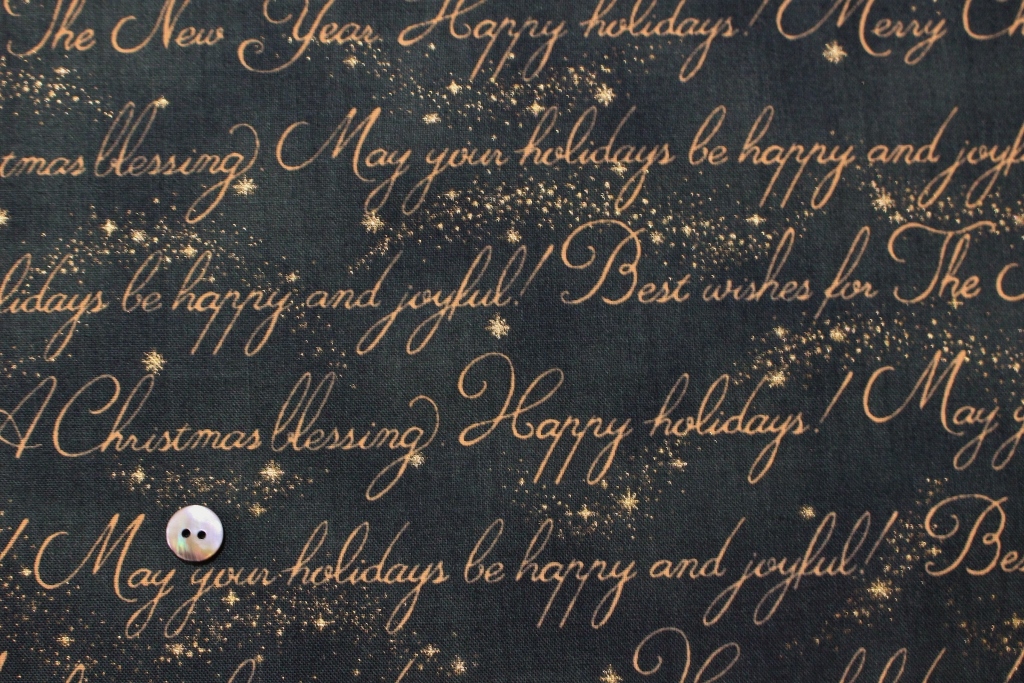 The New Year Happy holidays! Merry Ch
tmas blessing May your holidays be happy and joyf
lidays be happy and joyful! Best wishes for The
A Christmas blessing Happy holidays! May y
! May your holidays be happy and joyful! Bes